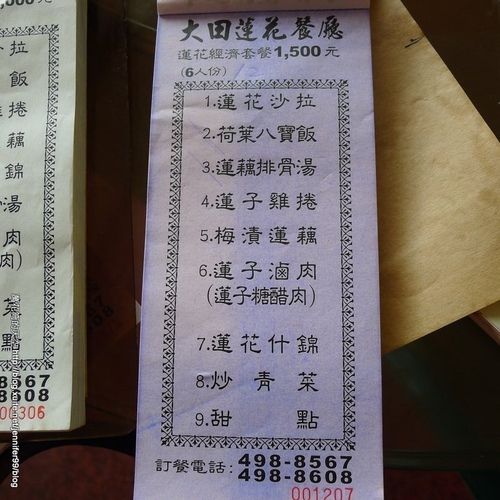 大田蓮花餐廳
蓮花經濟套餐1,500元
(6人份)
1.蓮花沙拉
2.荷葉八寶飯
3.蓮藕排骨湯
4.蓮子雞捲
5.梅漬蓮藕
6.蓮子滷肉
(蓮子糖醋肉)
7.蓮花什錦
8.炒青菜
9.甜點
訂餐電話:498-8567
498-8608
001207
,000元
拉
飯
捲
藕
錦
湯
肉
肉)
菜
點
8-8567
8-8608
00306